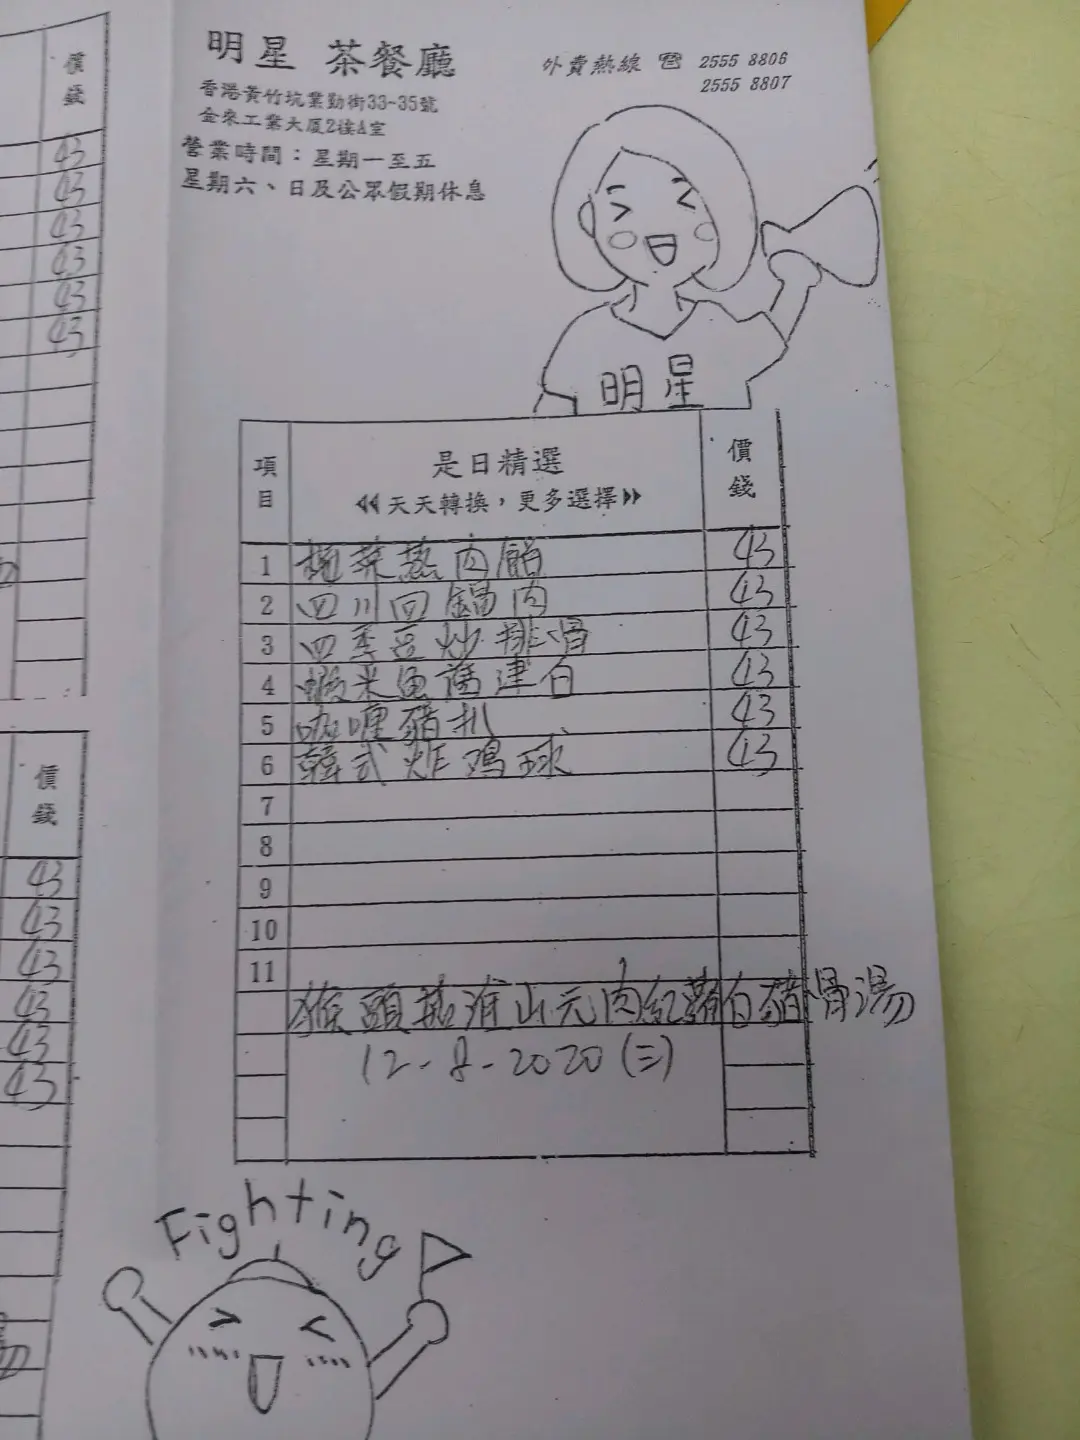 明星 茶餐廳
外賣熱線 ☎ 2555 8806
2555 8807
香港黃竹坑業勤街33-35號
金來工業大廈2樓A室
營業時間：星期一至五
星期六、日及公眾假期休息
明星
項目 是日精選 價錢
<<天天轉換，更多選擇>>
1 欖菜蒸肉餅 43
2 四川回鍋肉 43
3 四季豆炒排骨 43
4 蝦米魚 津白 43
5 咖喱豬扒 43
6 韓式炸鸡球 43
7
8
9
10
11
猴頭菇淮山元肉紅蘿白豬骨湯
12-8-2020 (三)
Fighting
價錢
43
43
43
43
43
43
價錢
43
43
43
43
43
43